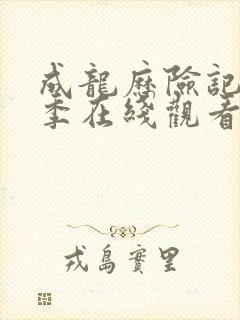 成龍歷險記
季在綫觀看
戎島實里